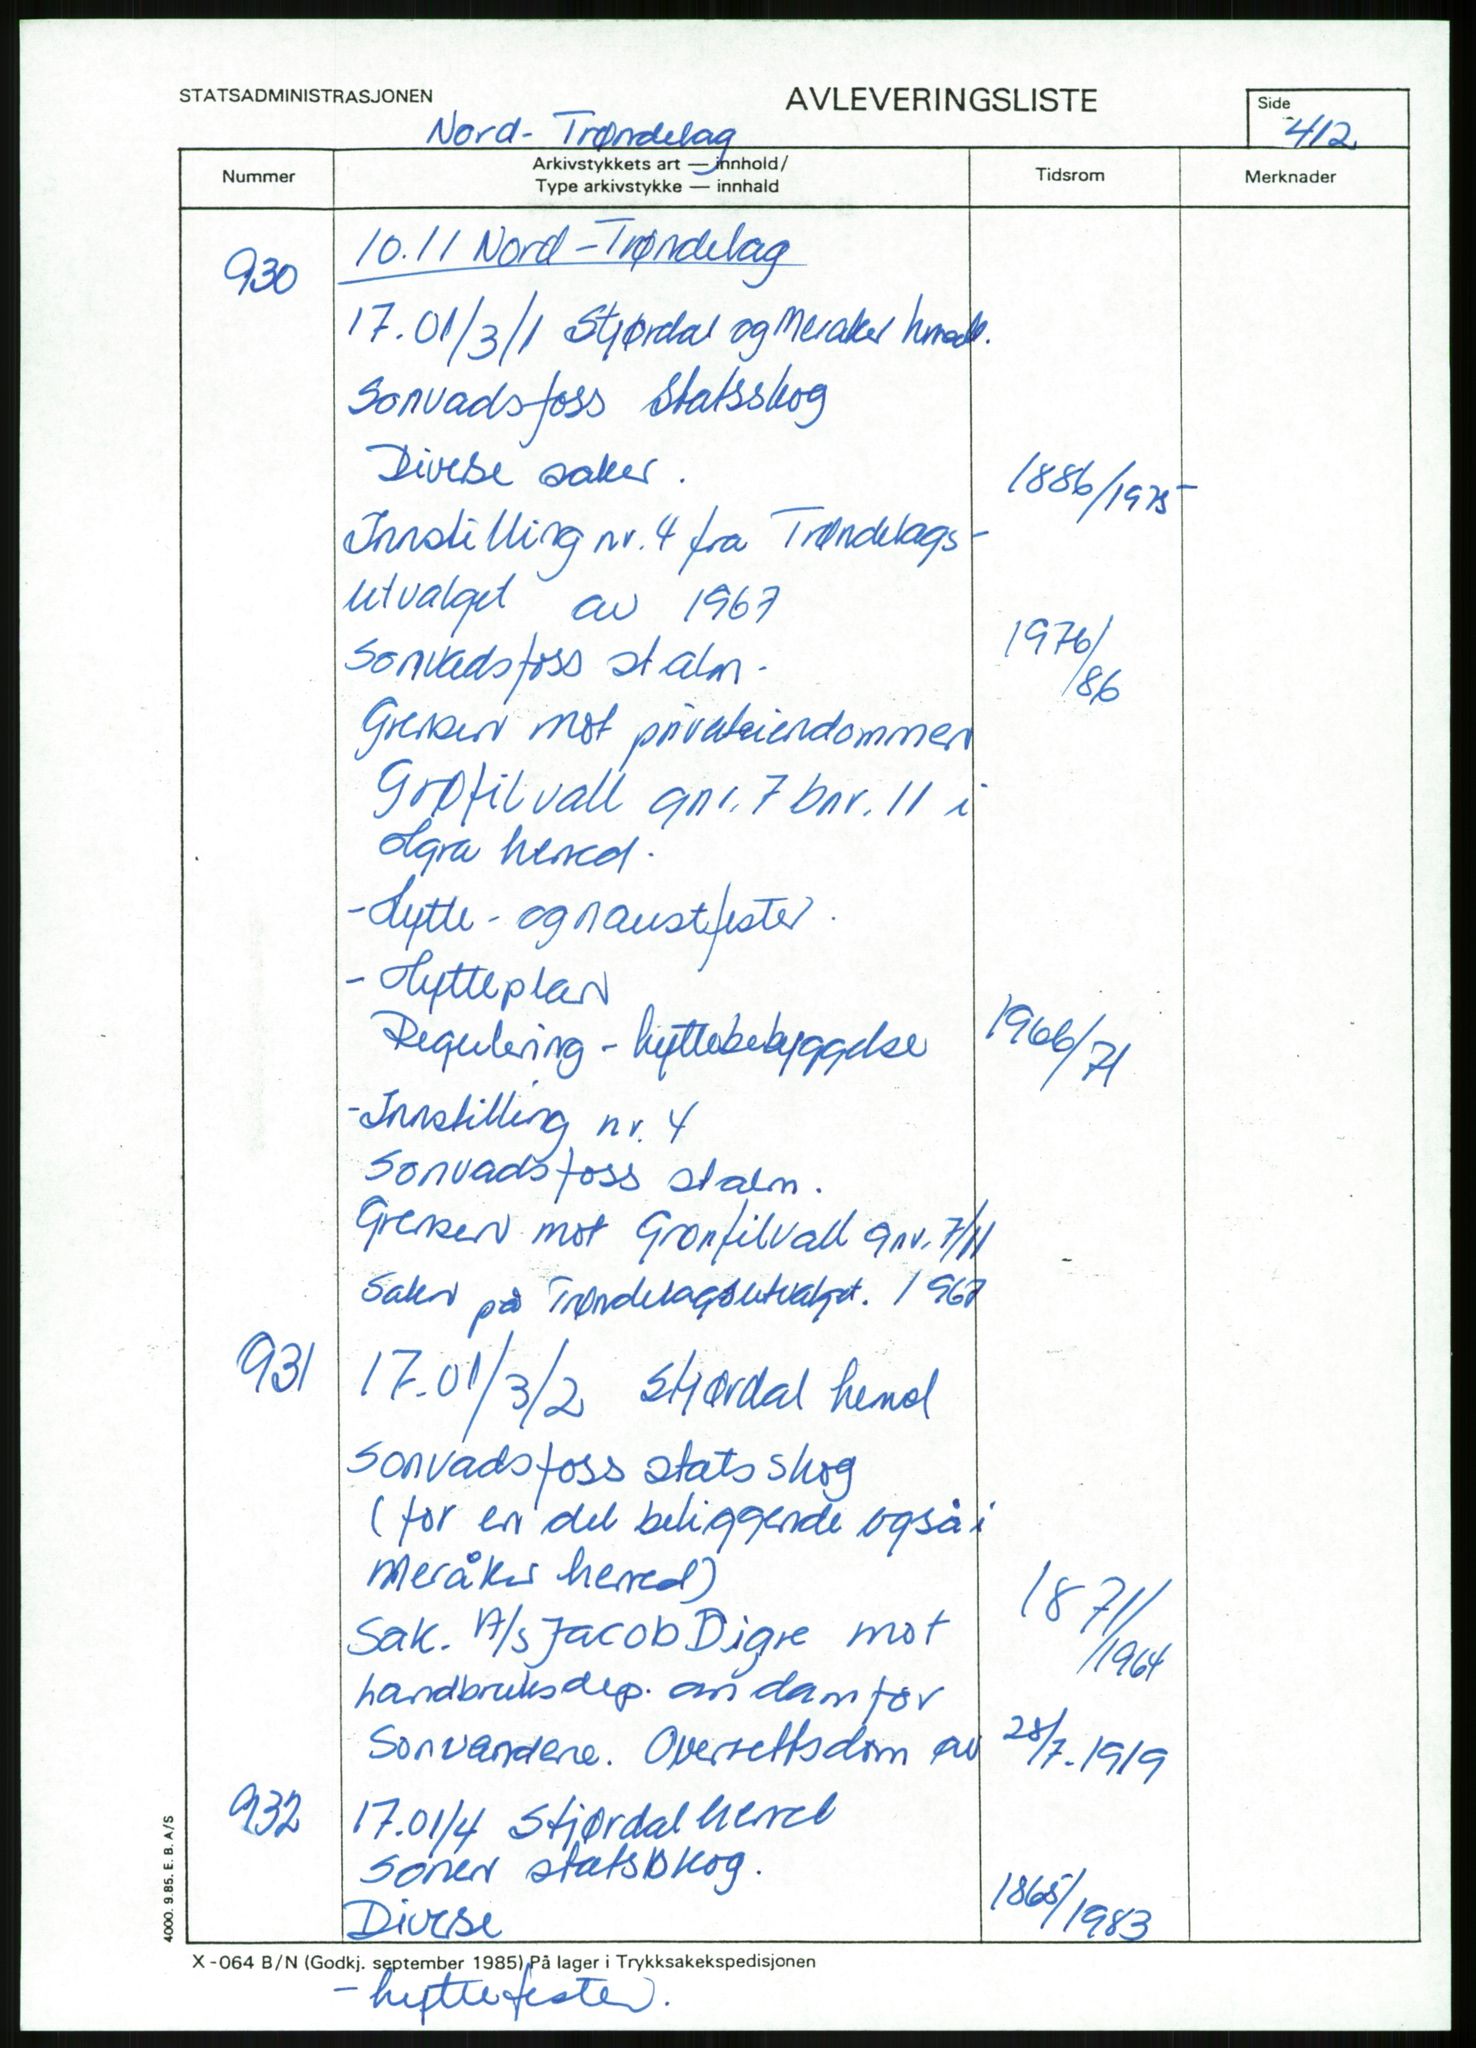 STATSADMINISTRASJONEN
AVLEVERINGSLISTE
Side
412
Nord-Trøndelag
Nummer
Arkivstykkets art — innhold/
Type arkivstykke — innhald
Tidsrom
Merknader
930
10.11 Nord-Trøndelag
17.01/3/1 Stjørdal og Meraker
Sonvadsfoss Statsskog
Diverse saker. 1886/1975
Innstilling nr. 4 fra Trøndelags-
utvalget av 1967
Sonvadsfoss stalm. 1976/
/86
Grensen mot privateiendommen
Grøfilvall gnr. 7 bnr. 11 i
Hgra herred.
- Hytte- og naustfester.
- Hytteplan
Regulering - hyttebebyggelse 1966/71
- Innstilling nr. 4
Sonvadsfoss stalm.
Grensen mot Gronfilvall gnr. 7/11
Saken på Trøndelagsutvalget. 1967
931 17.01/3/2 Stjørdal herred
Sonvadsfoss statsskog
(for en del beliggende også i
Meråker herred) 1871/
/1964
Sak. A/S Jacob Digre mot
Landbruksdep. om dam for
Sonvandene. Overrettsdom av 28/7-1919
932 17.01/4 Stjørdal herred
Sonen statsskog.
Diverse 1865/1983
4000. 9.85. E. B. A/S
X-064 B/N (Godkj. september 1985) På lager i Trykksakekspedisjonen
- hyttefester.